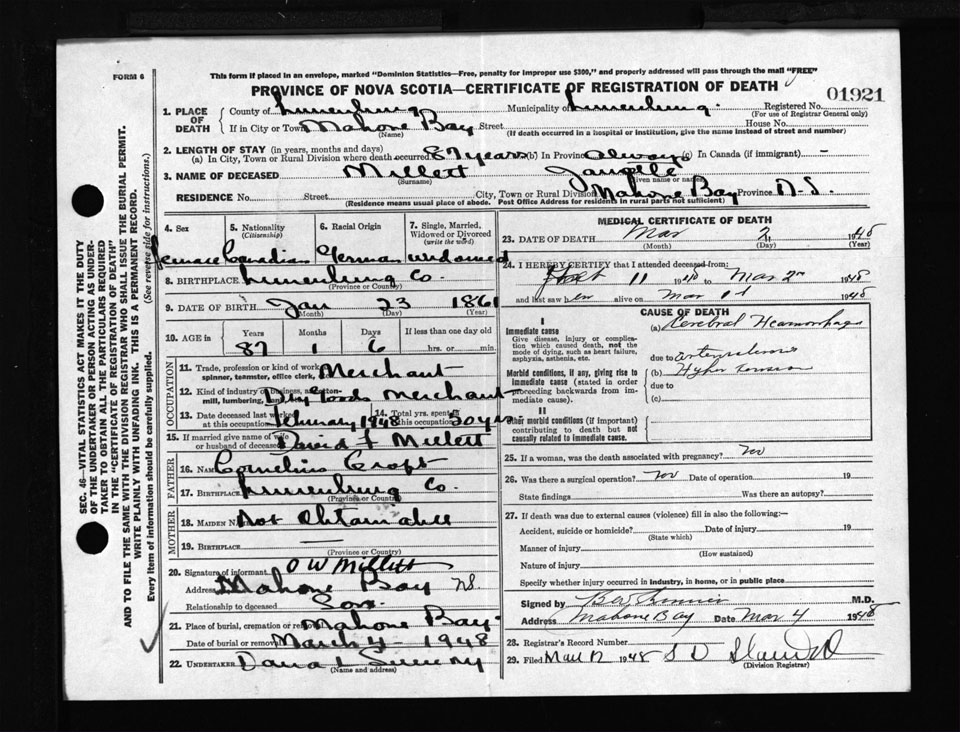 FORM 6
This form if placed in an envelope, marked "Dominion Statistics—Free, penalty for improper use $300," and properly addressed will pass through the mail "FREE"
PROVINCE OF NOVA SCOTIA—CERTIFICATE OF REGISTRATION OF DEATH
01921
1. PLACE OF DEATH
County of Lunenburg Municipality of Lunenburg Registered No.
(For use of Registrar General only)
If in City or Town Mahone Bay Street House No.
(Name) (If death occurred in a hospital or institution, give the name instead of street and number)
2. LENGTH OF STAY (in years, months and days)
(a) In City, Town or Rural Division where death occurred 87 years (b) In Province always (c) In Canada (if immigrant) —
3. NAME OF DECEASED Millett
(Surname) (Given name or names)
RESIDENCE No. Street City, Town or Rural Division Mahone Bay Province N.S.
(Residence means usual place of abode. Post Office Address for residents in rural parts not sufficient)
4. Sex 5. Nationality (Citizenship) 6. Racial Origin 7. Single, Married, Widowed or Divorced (write the word)
Female Canadian German widowed
8. BIRTHPLACE Lunenburg Co.
(Province or County)
9. DATE OF BIRTH Jan 23 1861
(Month) (Day) (Year)
10. AGE in Years Months Days If less than one day old
87 1 6 hrs. or min.
OCCUPATION
11. Trade, profession or kind of work as spinner, teamster, office clerk, Merchant
12. Kind of industry or business, mill, lumbering, Dry Goods Merchant
13. Date deceased last worked at this occupation February 1948 14. Total yrs. spent in 50 yrs
15. If married give name of wife or husband of deceased David F Millett
FATHER
16. Name Cornelius Croft
17. Birthplace Lunenburg Co.
(Province or Country)
MOTHER
18. MAIDEN NAME Not Obtainable
19. BIRTHPLACE —
(Province or Country)
20. Signature of informant O W Millett
Address Mahone Bay NS.
Relationship to deceased Son.
21. Place of burial, cremation or removal Mahone Bay
Date of burial or removal March 4 - 1948
22. UNDERTAKER
(Name and address)
MEDICAL CERTIFICATE OF DEATH
23. DATE OF DEATH Mar 2 1948
(Month) (Day) (Year)
24. I HEREBY CERTIFY that I attended deceased from:
11 1948 to Mar 2nd 1948
and last saw her alive on Mar 1st 1948
CAUSE OF DEATH
I
Immediate cause
Give disease, injury or complication which caused death, not the mode of dying, such as heart failure, asphyxia, asthenia, etc.
(a) Cerebral Heamorrhage
due to
Morbid conditions, if any, giving rise to immediate cause (stated in order proceeding backwards from immediate cause).
(b)
due to
(c)
II
Other morbid conditions (if important) contributing to death but not causally related to immediate cause.
25. If a woman, was the death associated with pregnancy? no
26. Was there a surgical operation? no Date of operation 19
State findings Was there an autopsy?
27. If death was due to external causes (violence) fill in also the following:—
Accident, suicide or homicide? Date of injury 19
(State which)
Manner of injury
(How sustained)
Nature of injury
Specify whether injury occurred in industry, in home, or in public place
Signed by M.D.
Address Mahone Bay Date Mar 4 1948
28. Registrar's Record Number
29. Filed 1948
(Division Registrar)
SEC. 46—VITAL STATISTICS ACT MAKES IT THE DUTY OF THE UNDERTAKER OR PERSON ACTING AS UNDERTAKER TO OBTAIN ALL THE PARTICULARS REQUIRED IN THE "CERTIFICATE OF REGISTRATION OF DEATH" AND TO FILE THE SAME WITH THE DIVISION REGISTRAR WHO SHALL ISSUE THE BURIAL PERMIT.
WRITE PLAINLY WITH UNFADING INK. THIS IS A PERMANENT RECORD.
Every item of information should be carefully supplied. (See reverse side for instructions.)